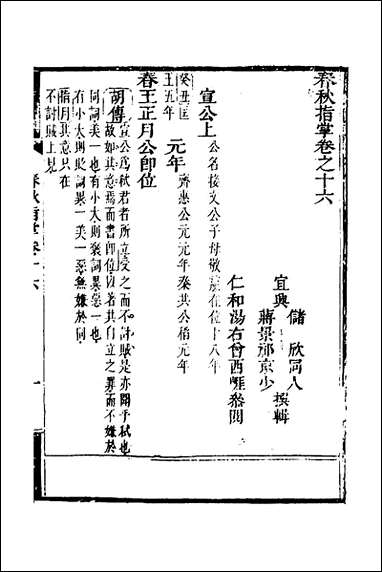 春秋指掌卷之十六
儲 欣同人
宜興 撰輯
蔣景祁京少
仁和湯右曾西崖叅閱
宣公上 公名接文公子母敬嬴在位十八年
癸丑匡
王五年 元年 齊惠公元元年秦共公稻元年
春王正月公即位
胡傳 宣公爲弑君者所立受之而不討賊是亦聞乎弑也
故如其意焉而書即位以著其自立之罪而不嫌於
同詞美一也有小大則褒詞異惡一也
有小大則貶詞異一美一惡無嫌於同
揩月其意只在
不討賊上見
春秋指掌卷十六
一